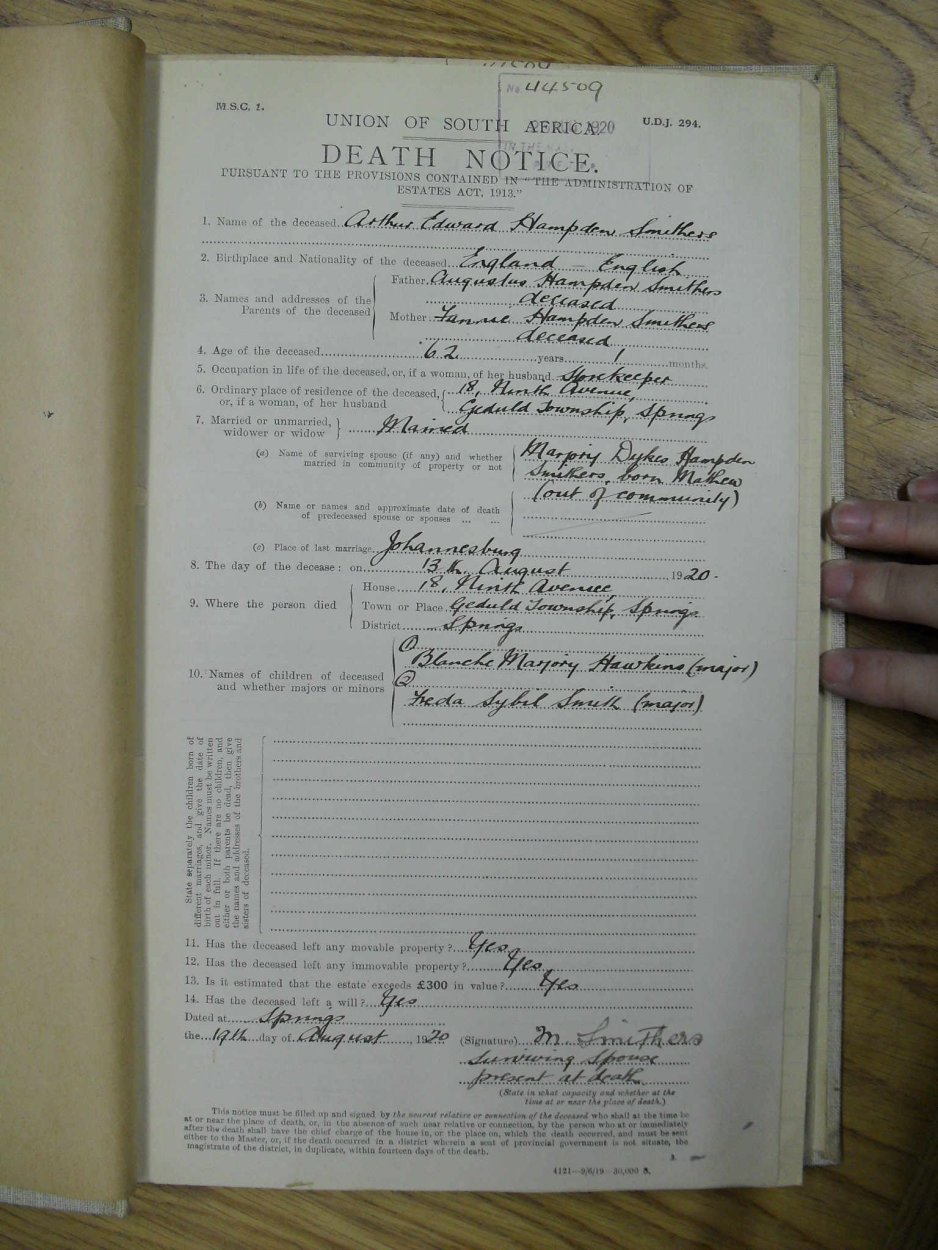 No. 44509
M.S.C. 1.
UNION OF SOUTH AFRICA.
1920
U.D.J. 294.
IN THE
DEATH NOTICE.
PURSUANT TO THE PROVISIONS CONTAINED IN "THE ADMINISTRATION OF
ESTATES ACT, 1913."
1. Name of the deceased Arthur Edward Hampden Smithers
2. Birthplace and Nationality of the deceased England – English
3. Names and addresses of the Parents of the deceased
Father Augustus Hampden Smithers
deceased
Mother Fannie Hampden Smithers
deceased
4. Age of the deceased 62 years 1 months.
5. Occupation in life of the deceased, or, if a woman, of her husband Storekeeper
6. Ordinary place of residence of the deceased, 18, Ninth Avenue,
or, if a woman, of her husband Geduld Township, Springs
7. Married or unmarried, widower or widow Married
(a) Name of surviving spouse (if any) and whether married in community of property or not
Marjory Dykes Hampden
Smithers, born Mathew
(out of community)
(b) Name or names and approximate date of death
of predeceased spouse or spouses ... ...
(c) Place of last marriage Johannesburg
8. The day of the decease: on 13th August 1920.
9. Where the person died
House 18, Ninth Avenue,
Town or Place Geduld Township, Springs
District Springs
10. Names of children of deceased and whether majors or minors
(1)
Blanche Marjory Hawkins (major)
(2)
Freda Sybil Smith (major)
State separately the children born of
different marriages, and give the date of
birth of each minor. Names must be written
out in full. If there are no children, and
either or both parents be dead, then give
the names and addresses of the brothers and
sisters of deceased.
11. Has the deceased left any movable property? Yes
12. Has the deceased left any immovable property? Yes
13. Is it estimated that the estate exceeds £300 in value? Yes
14. Has the deceased left a will? Yes
Dated at Springs
the 19th day of August, 1920 (Signature) M Smithers
surviving spouse
present at death
(State in what capacity and whether at the
time at or near the place of death.)
This notice must be filled up and signed by the nearest relative or connection of the deceased who shall at the time be
at or near the place of death, or, in the absence of such near relative or connection, by the person who at or immediately
after the death shall have the chief charge of the house in, or the place on, which the death occurred, and must be sent
either to the Master, or, if the death occurred in a district wherein a seat of provincial government is not situate, the
magistrate of the district, in duplicate, within fourteen days of the death.
J.
4121—9/6/19 30,000 S.